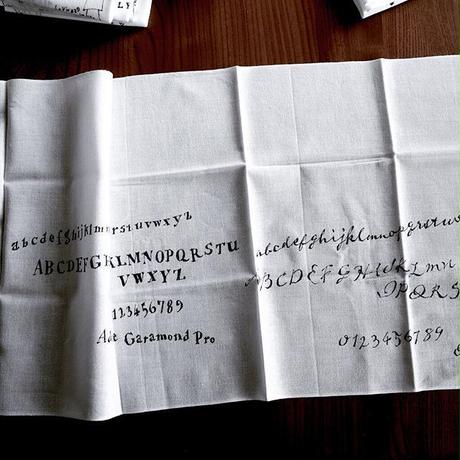 LY
abcdefghijklmnrstuvwxyz
ABCDEFGKLMNOPQRSTU
VWXYZ
123456789
Ade Garamond Pro
abcdefghijklmnopqrstu
ABCDEFGHIJKLmn
OPQRS
0123456789